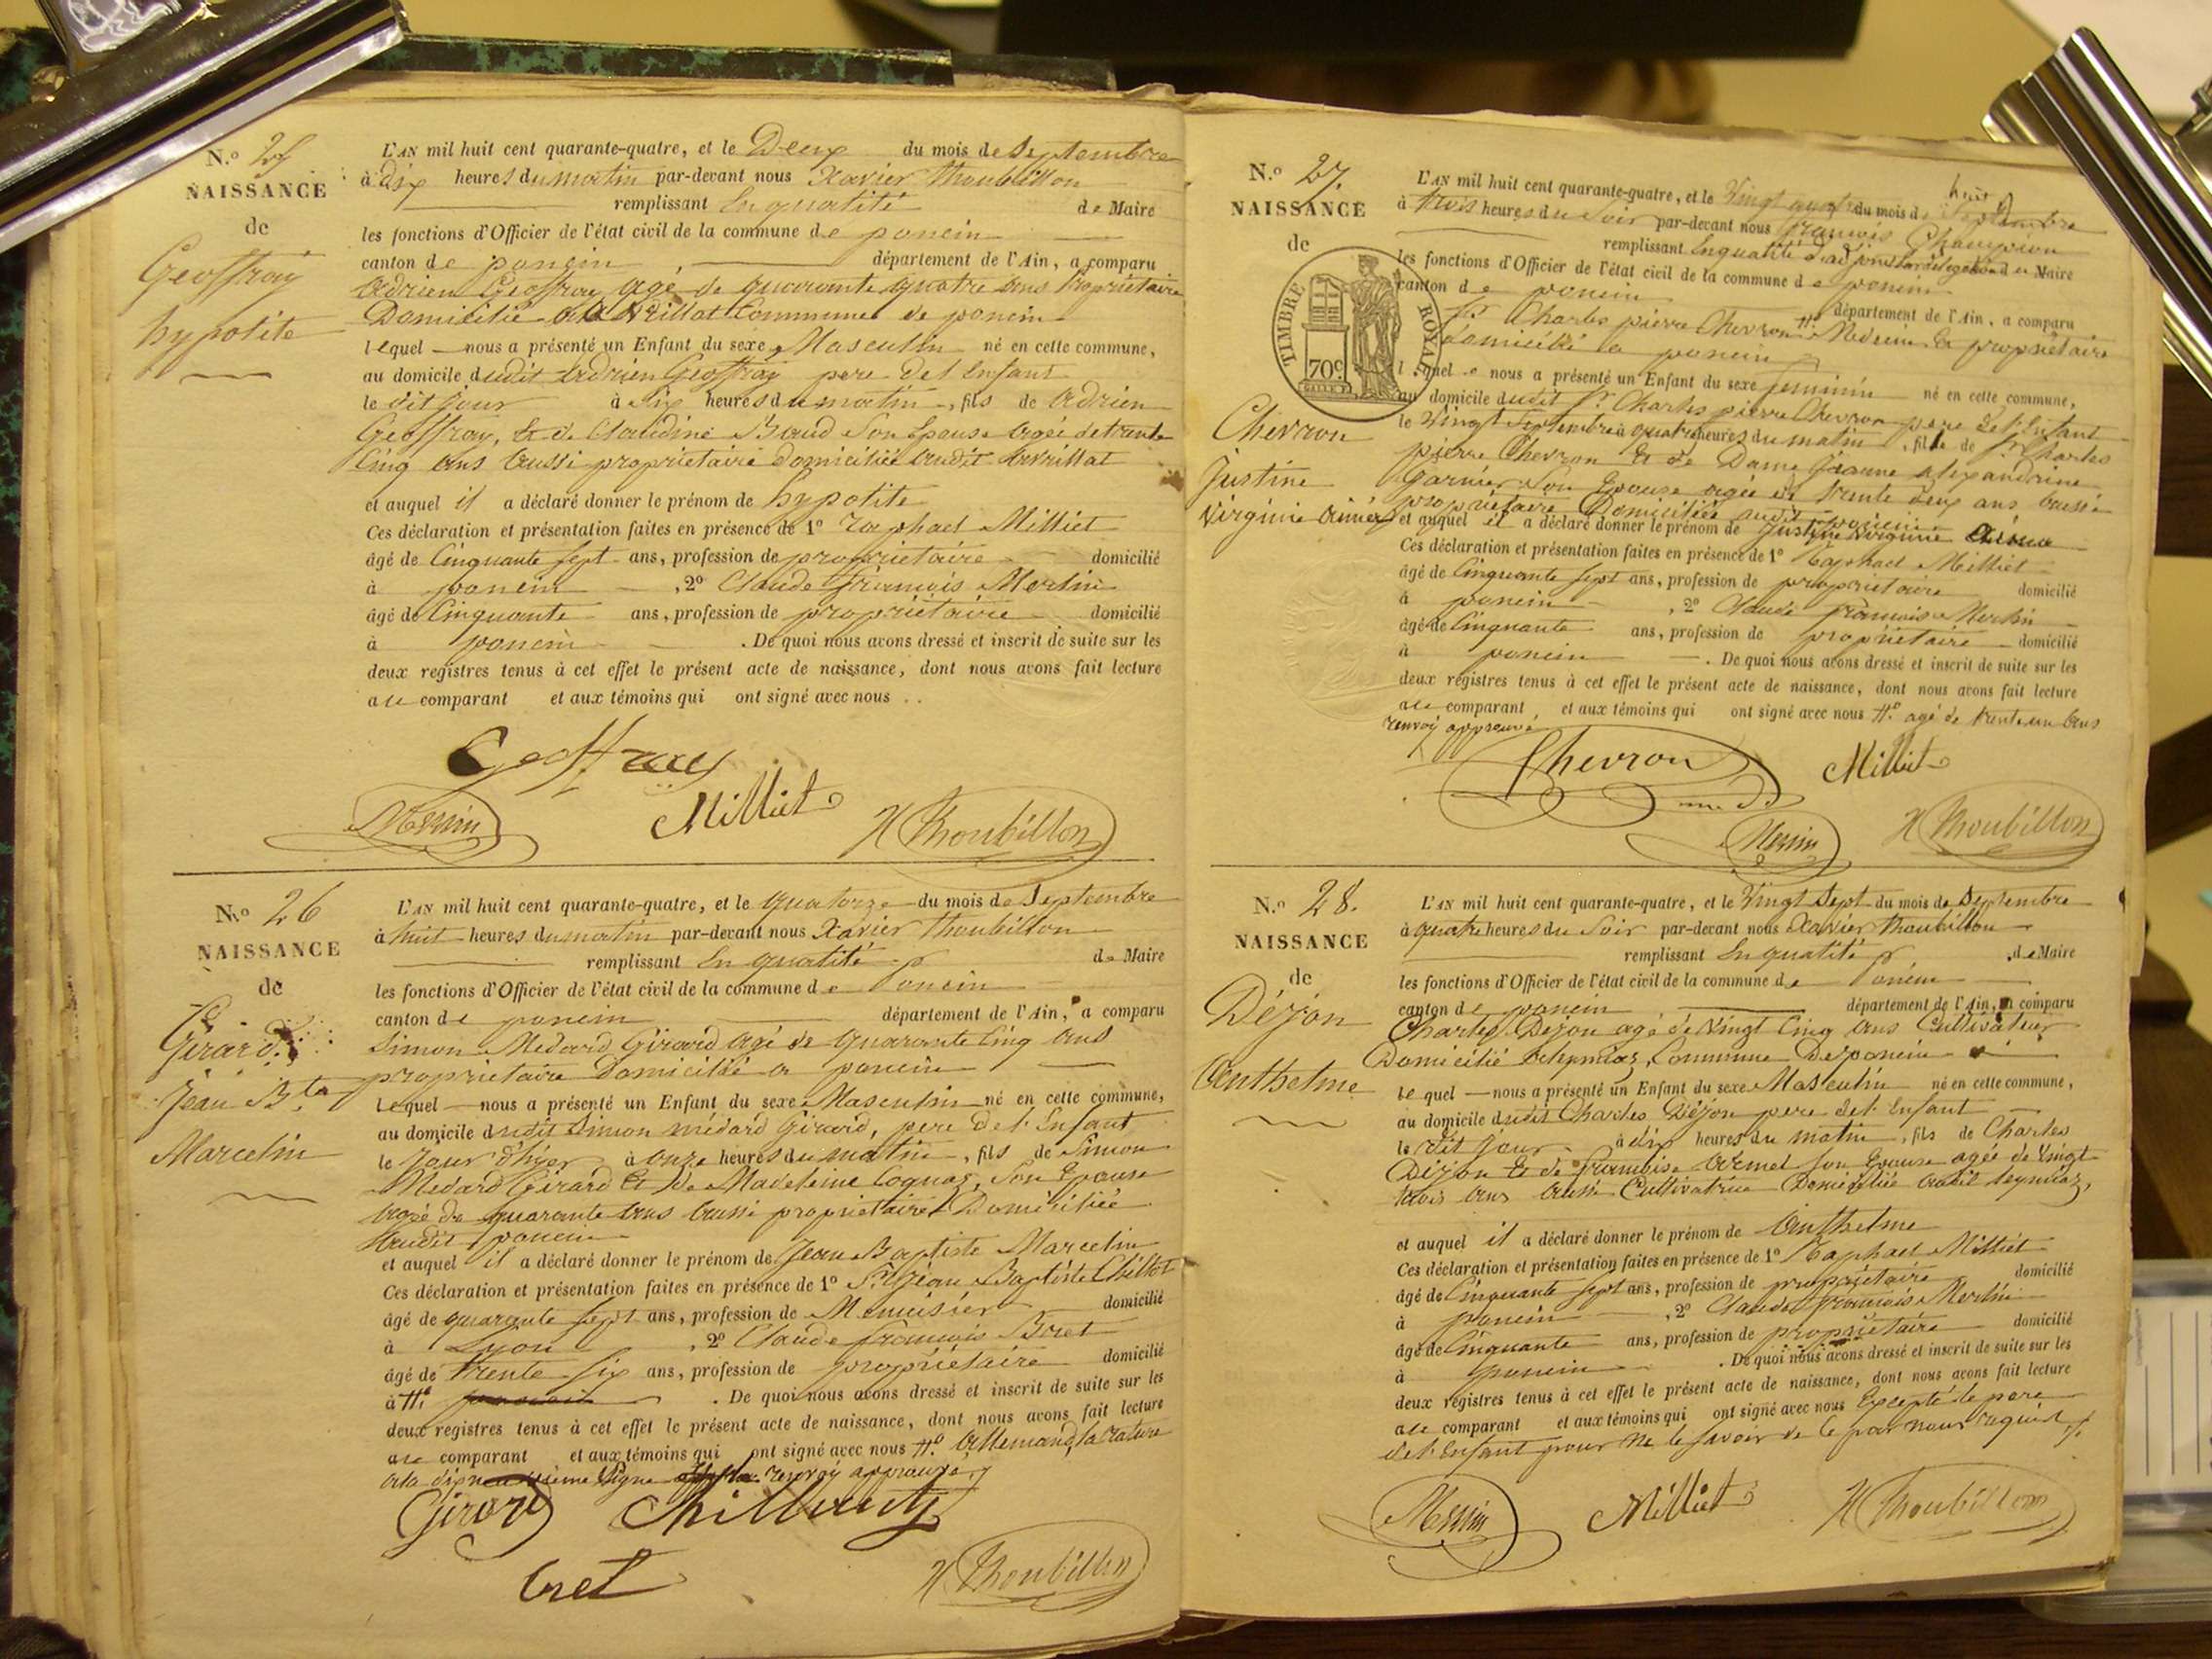 N.º 25
NAISSANCE
de
Geoffray
hypolite
L'AN mil huit cent quarante-quatre, et le Deux du mois de Septembre
à dix heures du matin par-devant nous Xavier Thoubillon
remplissant En qualité de Maire
les fonctions d'Officier de l'état civil de la commune de poncin
canton de poncin, département de l'Ain, a comparu
Adrien Geoffray agé de quarante quatre ans Propriétaire
Domicilié Commune de poncin
lequel nous a présenté un Enfant du sexe Masculin né en cette commune,
au domicile dudit Adrien Geoffray pere de l'Enfant
le dit jour à Six heures du matin, fils de Adrien
Geoffray, & de Claudine Baud Son Epouse agée de trente
Cinq ans Aussi propriétaire domiciliée audit
et auquel il a déclaré donner le prénom de hypolite
Ces déclaration et présentation faites en présence de 1º Raphael Milliet
âgé de Cinquante Sept ans, profession de propriétaire domicilié
à poncin, 2º Claude françois Merlin
âgé de Cinquante ans, profession de propriétaire domicilié
à poncin. De quoi nous avons dressé et inscrit de suite sur les
deux registres tenus à cet effet le présent acte de naissance, dont nous avons fait lecture
au comparant et aux témoins qui ont signé avec nous ..
Geoffray
Merlin Milliet X Thoubillon
N.º 26
NAISSANCE
de
Girard
Jean B.te
Marcelin
L'AN mil huit cent quarante-quatre, et le quatorze du mois de Septembre
à huit heures du matin par-devant nous Xavier Thoubillon
remplissant En qualité de Maire
les fonctions d'Officier de l'état civil de la commune de Poncin
canton de poncin département de l'Ain, a comparu
Simon Medard Girard agé de quarante Cinq ans
propriétaire domicilié a poncin
lequel nous a présenté un Enfant du sexe Masculin né en cette commune,
au domicile dudit Simon médard Girard, pere de l'Enfant
le jour d'hyer à onze heures du matin, fils de Simon
Medard Girard & De Madeleine Cognas, Son Epouse
agée de quarante ans Aussi propriétaire Domiciliée
Audit poncin
et auquel il a déclaré donner le prénom de Jean Baptiste Marcelin
Ces déclaration et présentation faites en présence de 1º Sr Jean Baptiste
âgé de quarante Sept ans, profession de Menuisier domicilié
à Lyon, 2º Claude françois Bret
âgé de trente Six ans, profession de propriétaire domicilié
à #. De quoi nous avons dressé et inscrit de suite sur les
deux registres tenus à cet effet le présent acte de naissance, dont nous avons fait lecture
au comparant et aux témoins qui ont signé avec nous #º Allemand, la rature
a la ligne renvoy approuvé
Girard
Bret X Thoubillon
N.º 27.
NAISSANCE
de
TIMBRE ROYAL
70c.
Chevron
Justine
Virginie Aimée
L'AN mil huit cent quarante-quatre, et le Vingt huit du mois de Septembre
à trois heures du Soir par-devant nous françois Champion
remplissant En qualité d'adjoint par délégation de Maire
les fonctions d'Officier de l'état civil de la commune de poncin
canton de poncin département de l'Ain, a comparu
Sr Charles pierre Chevron # Medecin & propriétaire
domicilié a poncin
lequel nous a présenté un Enfant du sexe feminin né en cette commune,
au domicile dudit Sr Charles pierre Chevron pere de l'Enfant
le Vingt Septembre à quatre heures du matin, fille de Sr Charles
pierre Chevron & de Dame Jeanne alexandrine
Garnier Son Epouse agée de trente deux ans Aussi
propriétaire Domiciliée audit poncin
et auquel il a déclaré donner le prénom de Justine Virginie Aimée
Ces déclaration et présentation faites en présence de 1º Raphael Milliet
âgé de Cinquante Sept ans, profession de propriétaire domicilié
à poncin, 2º Claude françois Merlin
âgé de Cinquante ans, profession de propriétaire domicilié
à poncin. De quoi nous avons dressé et inscrit de suite sur les
deux registres tenus à cet effet le présent acte de naissance, dont nous avons fait lecture
au comparant et aux témoins qui ont signé avec nous #º agé de trente un ans
renvoy approuvé
Chevron Milliet
Merlin X Thoubillon
N.º 28.
NAISSANCE
de
Déjon
Anthelme
L'AN mil huit cent quarante-quatre, et le Vingt Sept du mois de Septembre
à quatre heures du Soir par-devant nous Xavier Thoubillon
remplissant En qualité de Maire
les fonctions d'Officier de l'état civil de la commune de Poncin
canton de poncin département de l'Ain, a comparu
Charles Dejon agé de Vingt Cinq ans Cultivateur
Domicilié Commune De poncin
lequel nous a présenté un Enfant du sexe Masculin né en cette commune,
au domicile dudit Charles Déjon pere de l'Enfant
le dit jour à dix heures du matin, fils de Charles
Déjon & de françoise Son Epouse agée de Vingt
trois ans Aussi Cultivatrice Domiciliée
et auquel il a déclaré donner le prénom de Anthelme
Ces déclaration et présentation faites en présence de 1º Raphael Milliet
âgé de Cinquante Sept ans, profession de propriétaire domicilié
à poncin, 2º Claude françois Merlin
âgé de Cinquante ans, profession de propriétaire domicilié
à poncin. De quoi nous avons dressé et inscrit de suite sur les
deux registres tenus à cet effet le présent acte de naissance, dont nous avons fait lecture
au comparant et aux témoins qui ont signé avec nous Excepté le pere
de l'Enfant pour ne le Savoir de ce par nous requis
Merlin Milliet X Thoubillon